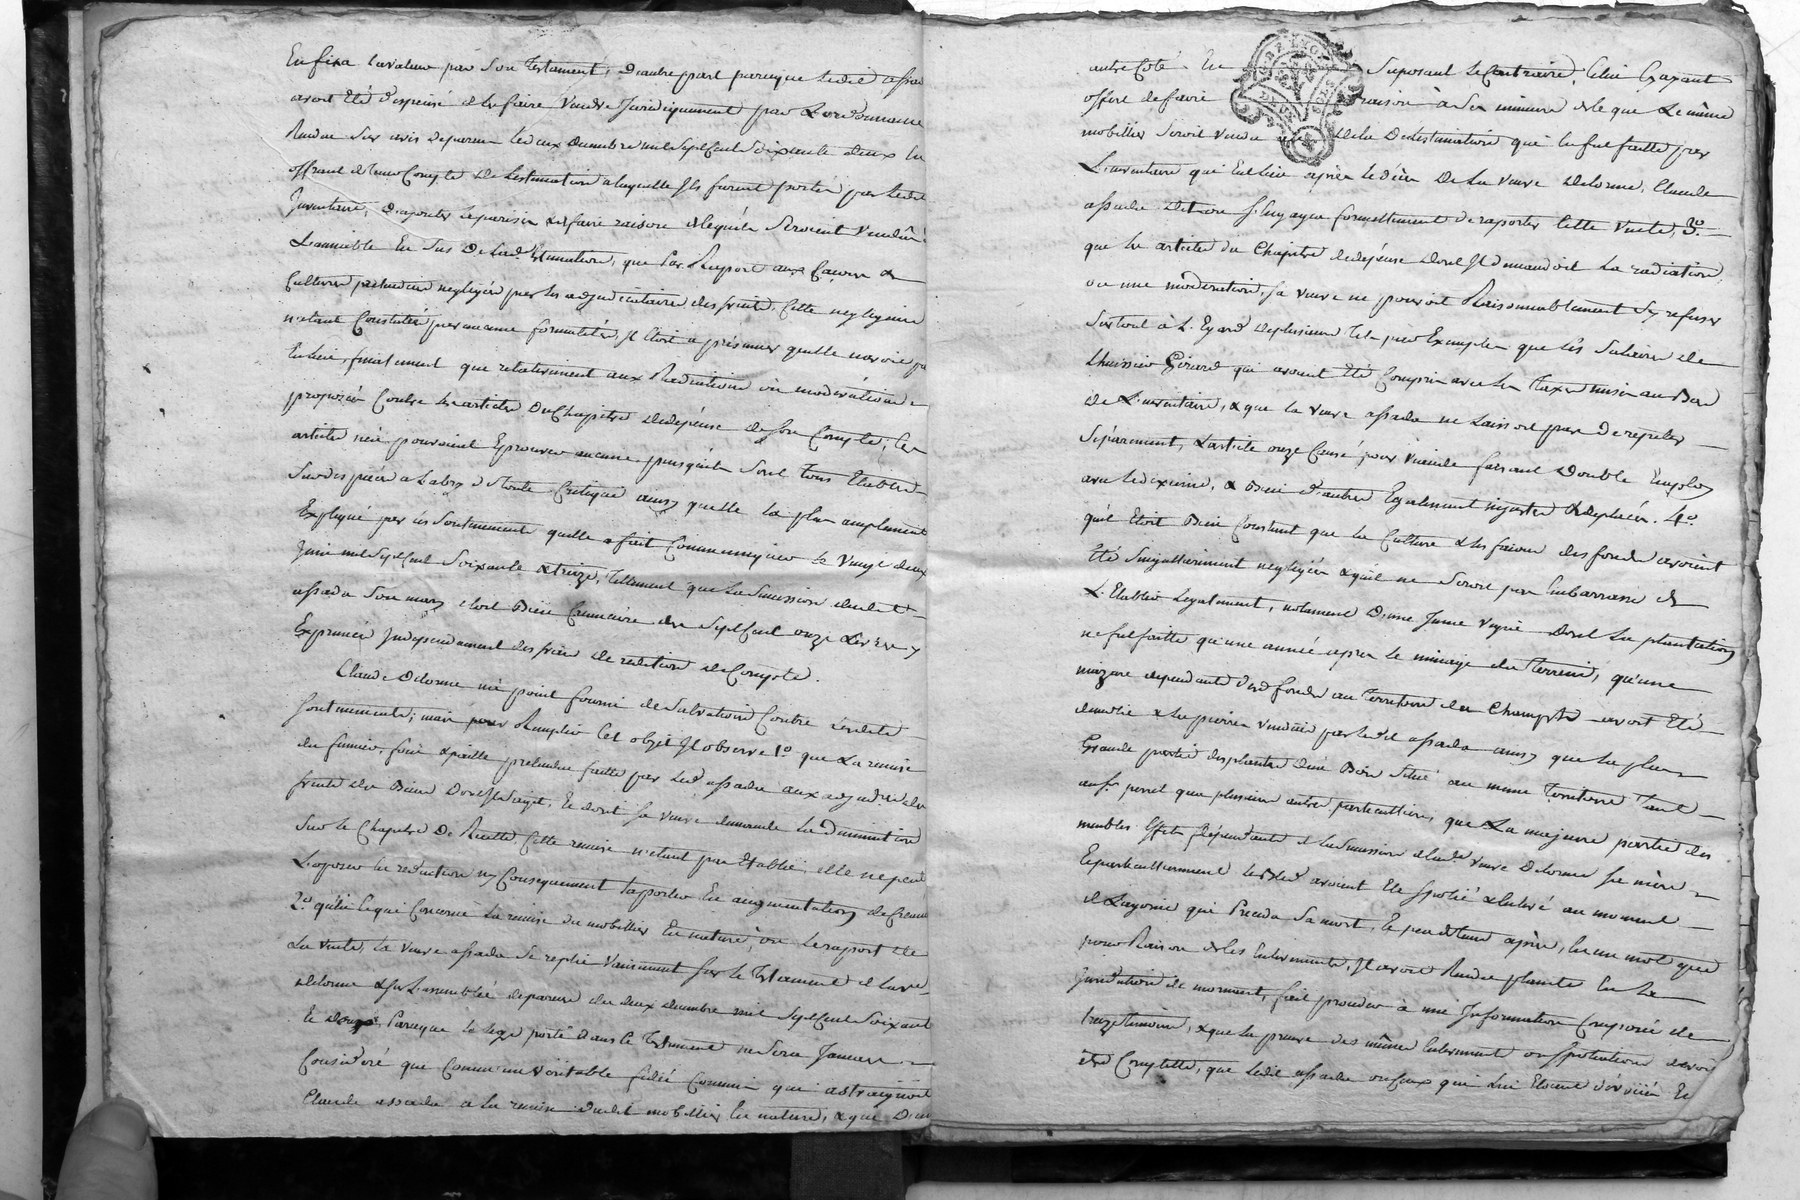 En fixa la valeur par son Testament, D'autre part parceque ledit assada
avoit été dispensé de les faire vendre Juridiquement par L'ordonnance
Rendue sur avis de parens le deux decembre mil sept Cent soixante deux En
offrant de tenir Compte de L'estimation a laquelle Ils furent portés par ledit
Inventaire, D'ajouter le parisis & de faire raison de ce qu'ils seroient vendus
L'amiable En sus De lad. Estimation, que Par Raport aux façons &
Cultures pretendues negligées par les adjudicataires des fruits, Cette negligence
n'etant Constatée par aucune formalité, Il étoit a présumer qu'elle n'avoit pu
En lieu, finalement que relativement aux Radiations ou modérations
proposées Contre les articles Du Chapitre de depense de son Compte, Ces
articles n'en pouvoient Eprouver aucune puisqu'ils sont tous Etablis
Sur des pieces a L'abry de toute Critique ainsy qu'elle la plus amplement
Expliqué par les soutenements qu'elle a fait Communiquer le vingt deux
Juin mil sept Cent Soixante & treize, tellement que la succession dudit
assada son mary etoit Bien Creanciere des sept Cent onze Livres y
Exprimées Independament des frais de reddition de Compte.
Claude Delorme n'a point fourni de Salvations Contre Lesdits
soutenements; mais pour Remplir Cet objet Il observe 1.° que La remise
du fumier, foin & paille pretendue faite par led. assada aux adjud.res des
fruits des Biens Dont Il s'agit, Et dont sa veuve demande la Diminution
Sur le Chapitre De Recette, Cette remise n'etant pas Etablie, elle ne peut
L'oposer en reduction ny Consequement l'aporter En augmentation de Creance
2.° qu'en Ce qui Concerne la remise du mobilier En nature, ou le raport de
La vente, la veuve assada se replie vainement sur le Testament de la ve.
Delorme & sur L'assemblée de parens du deux decembre mil Sept Cent Soixante
Et Douze Parceque le legs porté dans le Testament ne sera Jamais
Consideré que Comme un véritable fidei Commis qui astraignoit
Claude assada a la remise dudit mobilier En nature, & que D'un
autre Coté En Suposant le Contraire, Celui Cy ayant
offert de faire raison à Son mineur de ce que Le même
mobilier seroit vendu De la De L'estimation qui En fut faitte par
L'inventaire qui Eut lieu après le décès De La veuve Delorme, Claude
assada Debvoit S'engager formellement de raporter Cette vente, 3.°
que les articles du Chapitre de depense dont Il demandoit La radiation
ou une modération, sa veuve ne pouvoit Raisonnablement S'y refuser
Surtout à L'Egard de plusieurs tels par Exemple que les Salaires de
L'huissier Girard qui avoient Eté Compris avec les Taxes mises au Bas
De L'inventaire, & que la veuve assada ne Laissoit pas De repeter
Séparement, L'article onze Causé pour viande faisant Double Employ
avec le dixieme, & Bien d'autres Egalement injustes & deplacés. 4.°
qu'il Etoit Bien Constant que la Culture & les façons des fonds avoient
Eté Singulierement negligées & qu'il ne seroit pas Embarrassé de
L'Etablir Legalement, notament D'une Jeune vigne dont la plantation
ne fut faitte qu'une année après le minage du Terrein, qu'une
mazure dependante des fonds au Territoire des Champts avoit Eté
démolie & les pierres vendües par ledit assada ainsy que la plus
Grande partie des plantes d'un Bois Situé au meme Territoire Tant
au S.r perret que plusieurs autres particulliers, que La majeure partie des
meubles Effets dépendants de la Succession de lad.e veuve Delorme sa mere
Et particullierement le Bled avoient Eté spolié & Enlevé au moment
de L'agonie qui Preceda Sa mort, Et peu de temps après, En un mot que
pour Raison de Ces Enlevements, Il avoit Rendu plainte En la
Juridiction de mornant, fait proceder à une Information Composée de
treize temoins, & que la preuve des mêmes Enlevement ou spoliation devoit
être Complette, que ledit assada ou Ceux qui Lui Etoient dévoüés En